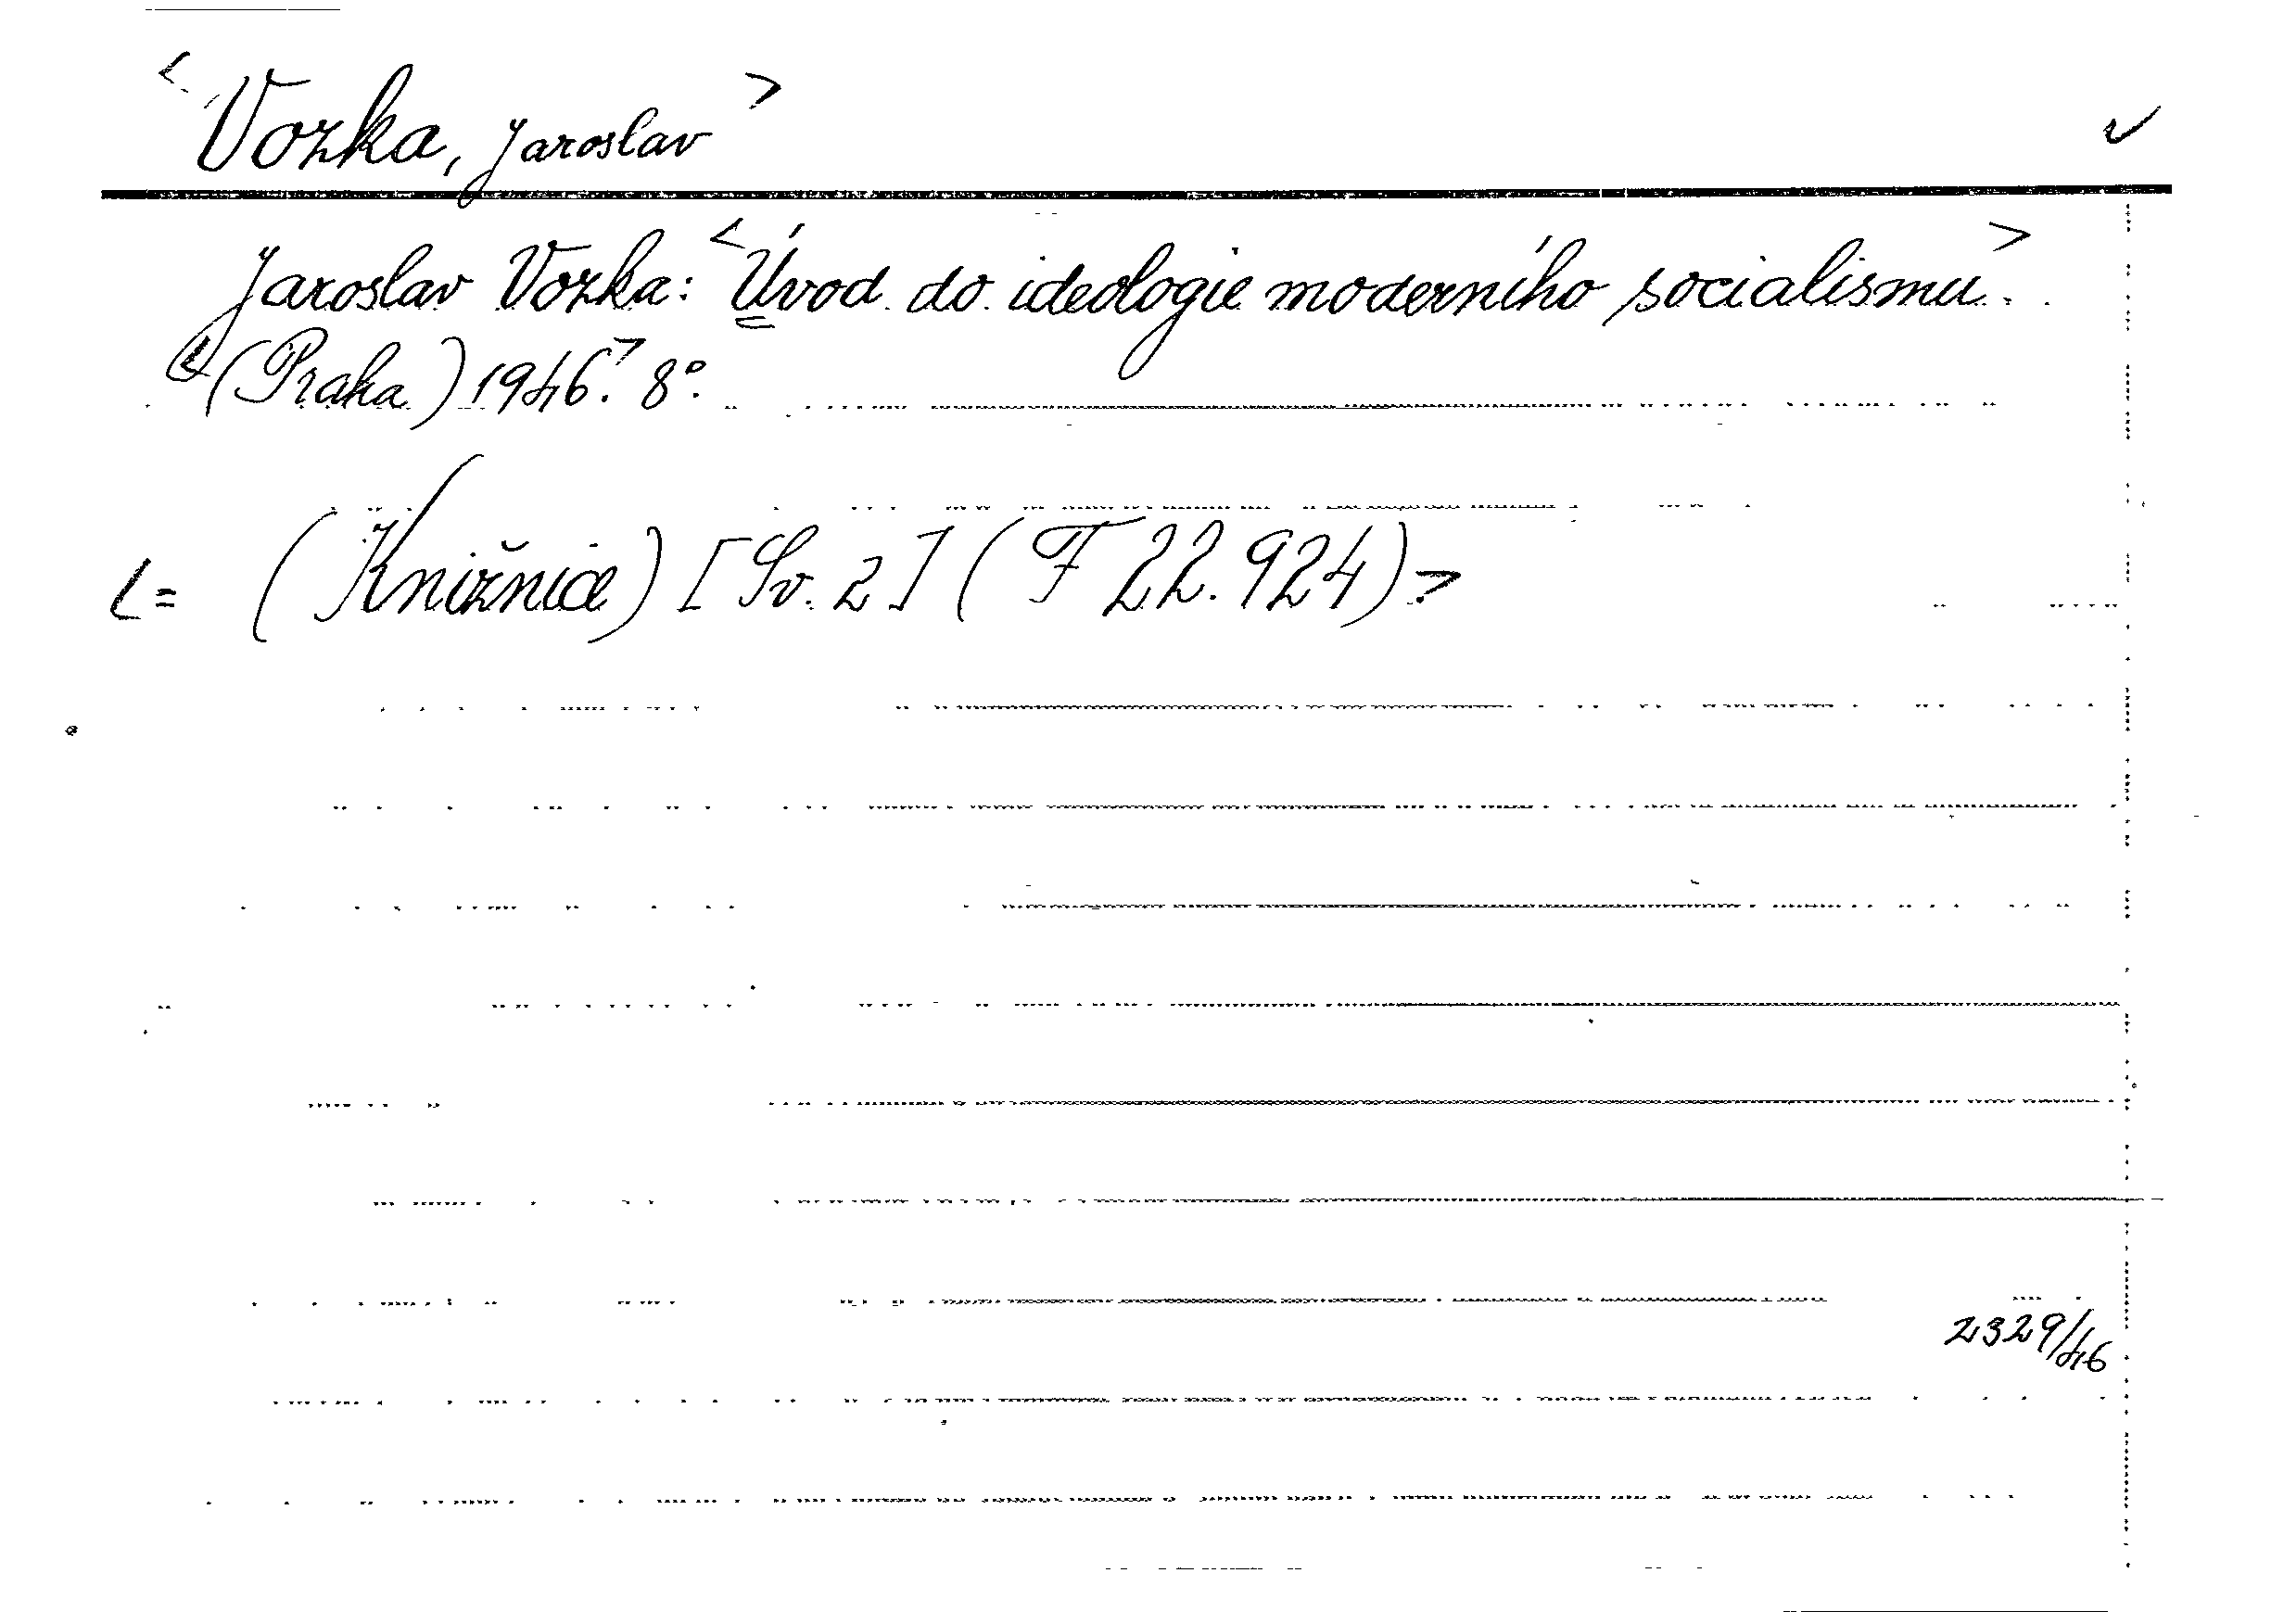 <Vozka, Jaroslav> ✓
Jaroslav Vozka: <Úvod do ideologie moderního socialismu.>
<(Praha) 1946.> 8°.
<= (Knižnice) [Sv. 2] (F 22.924).>
2329/46